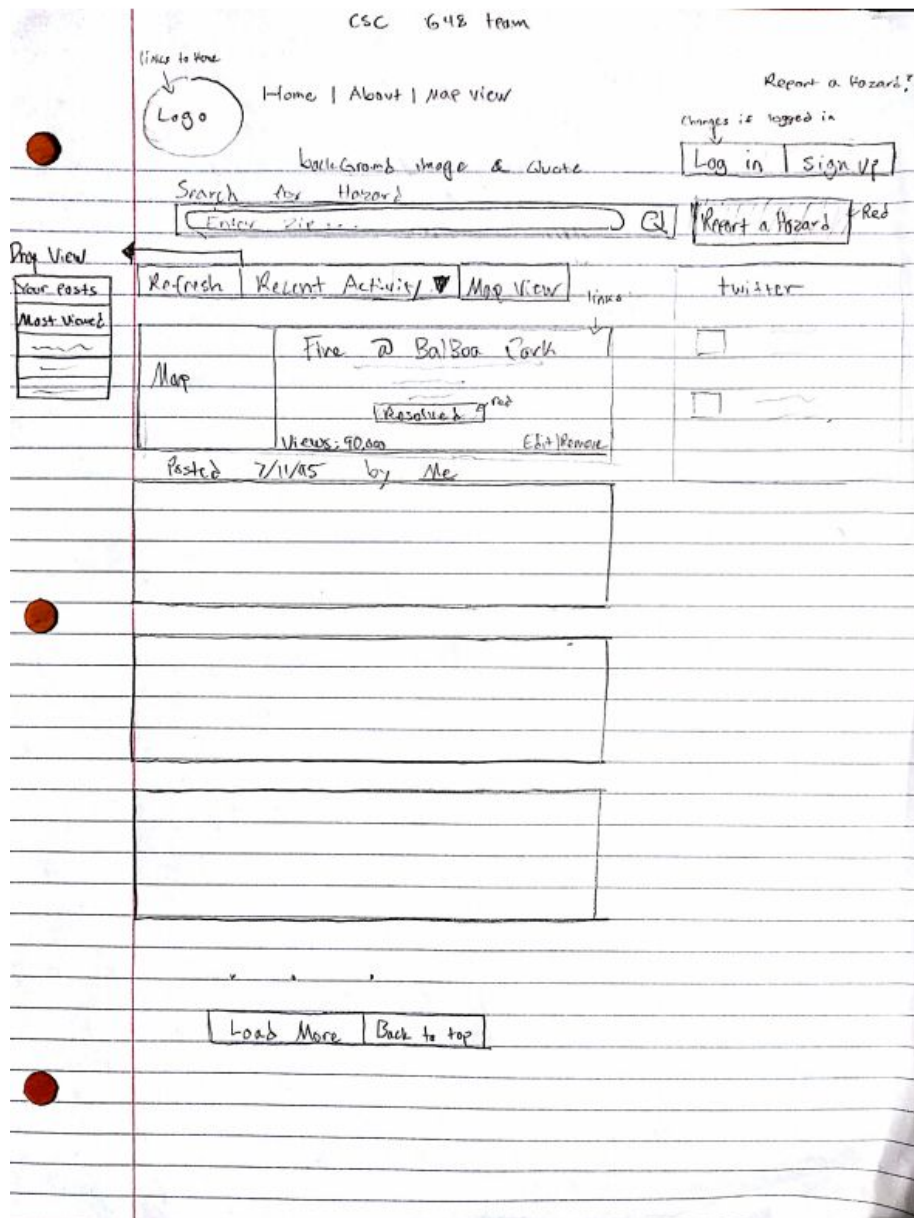 CSC 648 team
links to Home
Logo
Home | About | Map View
Report a Hazard?
Changes if logged in
Log in | Sign Up
background image & Quote
Search for Hazard
Enter Zip ...
Report a Hazard
Red
Drop View
Your Posts
Most Viewed
Refresh | Recent Activity ▼ | Map View
links
twitter
Map
Fire @ BalBoa Park
Resolved
red
Views: 90,000
Edit|Remove
Posted 7/11/15 by Me
Load More | Back to top